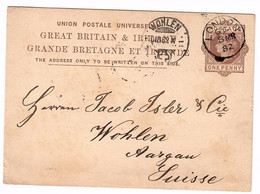 UNION POSTALE UNIVERSE
GREAT BRITAIN & I
GRANDE BRETAGNE ET
THE ADDRESS ONLY TO BE WRITTEN ON THIS SIDE.
WOHLEN
LONDON
82
ONE PENNY
Herren Jacob Isler & Cie
Wohlen
Aargau
Suisse